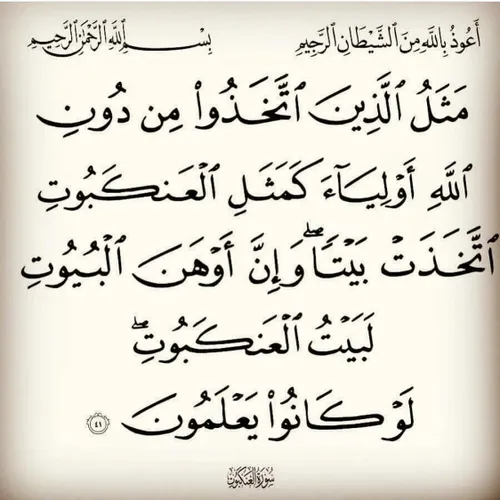 أَعُوذُ بِاللَّهِ مِنَ ٱلشَّيْطَانِ ٱلرَّجِيمِ بِسْمِ ٱللَّهِ ٱلرَّحْمَٰنِ ٱلرَّحِيمِ
مَثَلُ ٱلَّذِينَ ٱتَّخَذُوا۟ مِن دُونِ
ٱللَّهِ أَوْلِيَآءَ كَمَثَلِ ٱلْعَنكَبُوتِ
ٱتَّخَذَتْ بَيْتًا ۖ وَإِنَّ أَوْهَنَ ٱلْبُيُوتِ
لَبَيْتُ ٱلْعَنكَبُوتِ ۖ
لَوْ كَانُوا۟ يَعْلَمُونَ ٤١
سُورَةُ العَنكَبُوتِ